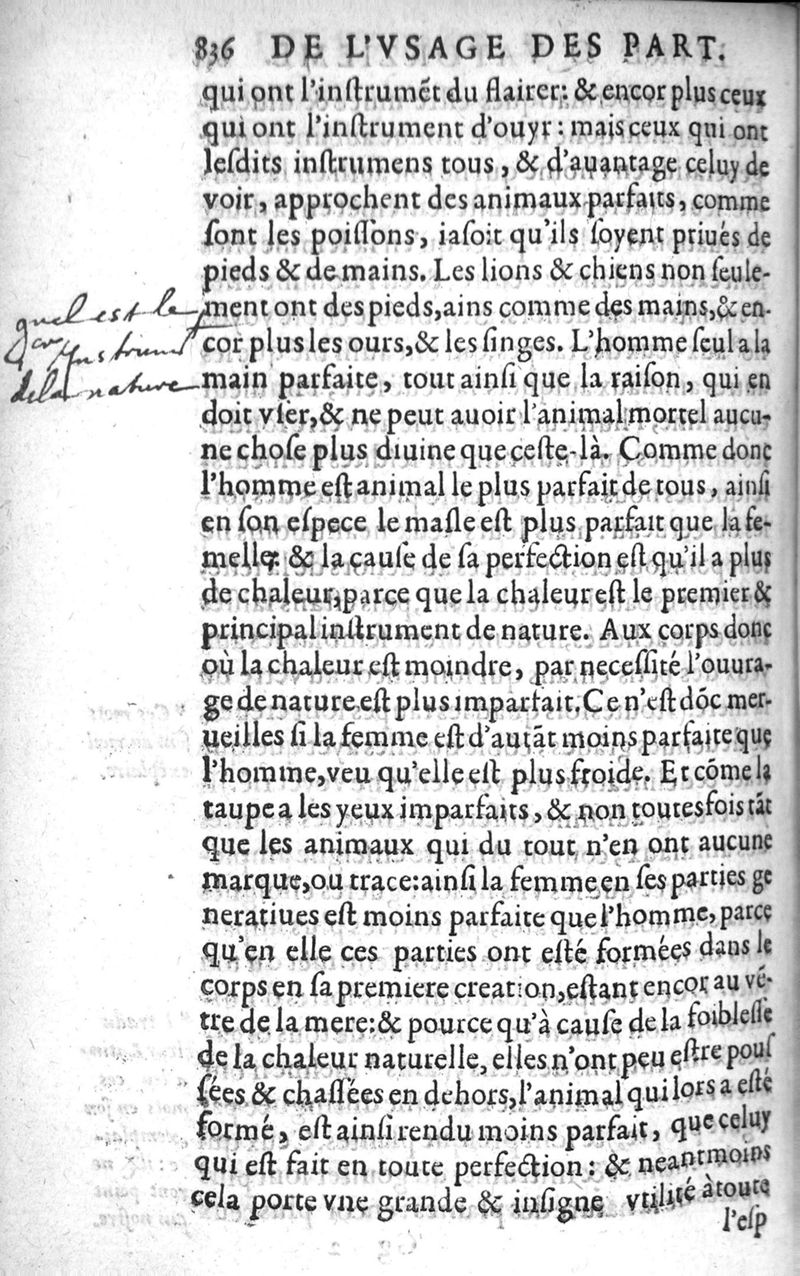 836 DE L'VSAGE DES PART.
qui ont l'inſtrumẽt du flairer: & encor plus ceux
qui ont l'inſtrument d'ouyr: mais ceux qui ont
leſdits inſtrumens tous, & d'auantage celuy de
voir, approchent des animaux parfaits, comme
ſont les poiſſons, iaſoit qu'ils ſoyent priués de
pieds & de mains. Les lions & chiens non ſeule-
quel est le
ment ont des pieds, ains comme des mains, & en-
Instrument
cor plus les ours, & les ſinges. L'homme ſeul a la
de la nature
main parfaite, tout ainſi que la raiſon, qui en
doit vſer, & ne peut auoir l'animal mortel aucu-
ne choſe plus diuine que ceſte-là. Comme donc
l'homme eſt animal le plus parfait de tous, ainſi
en ſon eſpece le maſle eſt plus parfait que la fe-
melle: & la cauſe de ſa perfection eſt qu'il a plus
de chaleur, parce que la chaleur eſt le premier &
principal inſtrument de nature. Aux corps donc
où la chaleur eſt moindre, par neceſſité l'ouura-
ge de nature eſt plus imparfait. Ce n'eſt dõc mer-
ueilles ſi la femme eſt d'autãt moins parfaite que
l'homme, veu qu'elle eſt plus froide. Et cõme la
taupe a les yeux imparfaits, & non toutesfois tãt
que les animaux qui du tout n'en ont aucune
marque, ou trace: ainſi la femme en ſes parties ge
neratiues eſt moins parfaite que l'homme, parce
qu'en elle ces parties ont eſté formées dans le
corps en ſa premiere creation, eſtant encor au vẽ-
tre de la mere: & pource qu'à cauſe de la foibleſſe
de la chaleur naturelle, elles n'ont peu eſtre pouſ
ſées & chaſſées en dehors, l'animal qui lors a eſté
formé, eſt ainſi rendu moins parfait, que celuy
qui eſt fait en toute perfection: & neantmoins
cela porte vne grande & inſigne vtilité à toute
l'eſp